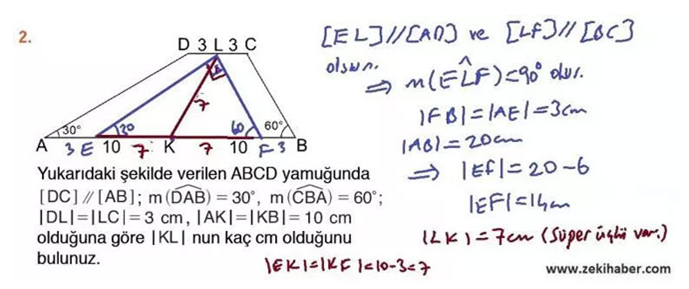 2.
D 3 L 3 C
[EL]//[AD] ve [LF]//[BC]
olsun.
⇒ m(ELF)=90° olur.
|FB|=|AE|=3cm
|AB|=20cm
⇒ |EF|=20-6
|EF|=14cm
|LK|=7cm (Süper üçlü var.)
7
30° 30 60 60°
A 3 E 10 K 10 F 3 B
7 7
Yukarıdaki şekilde verilen ABCD yamuğunda
[DC] // [AB]; m(DAB) = 30°, m(CBA) = 60°;
|DL|=|LC|= 3 cm, |AK|=|KB|= 10 cm
olduğuna göre |KL| nun kaç cm olduğunu
bulunuz.
|EK|=|KF|=10-3=7
www.zekihaber.com